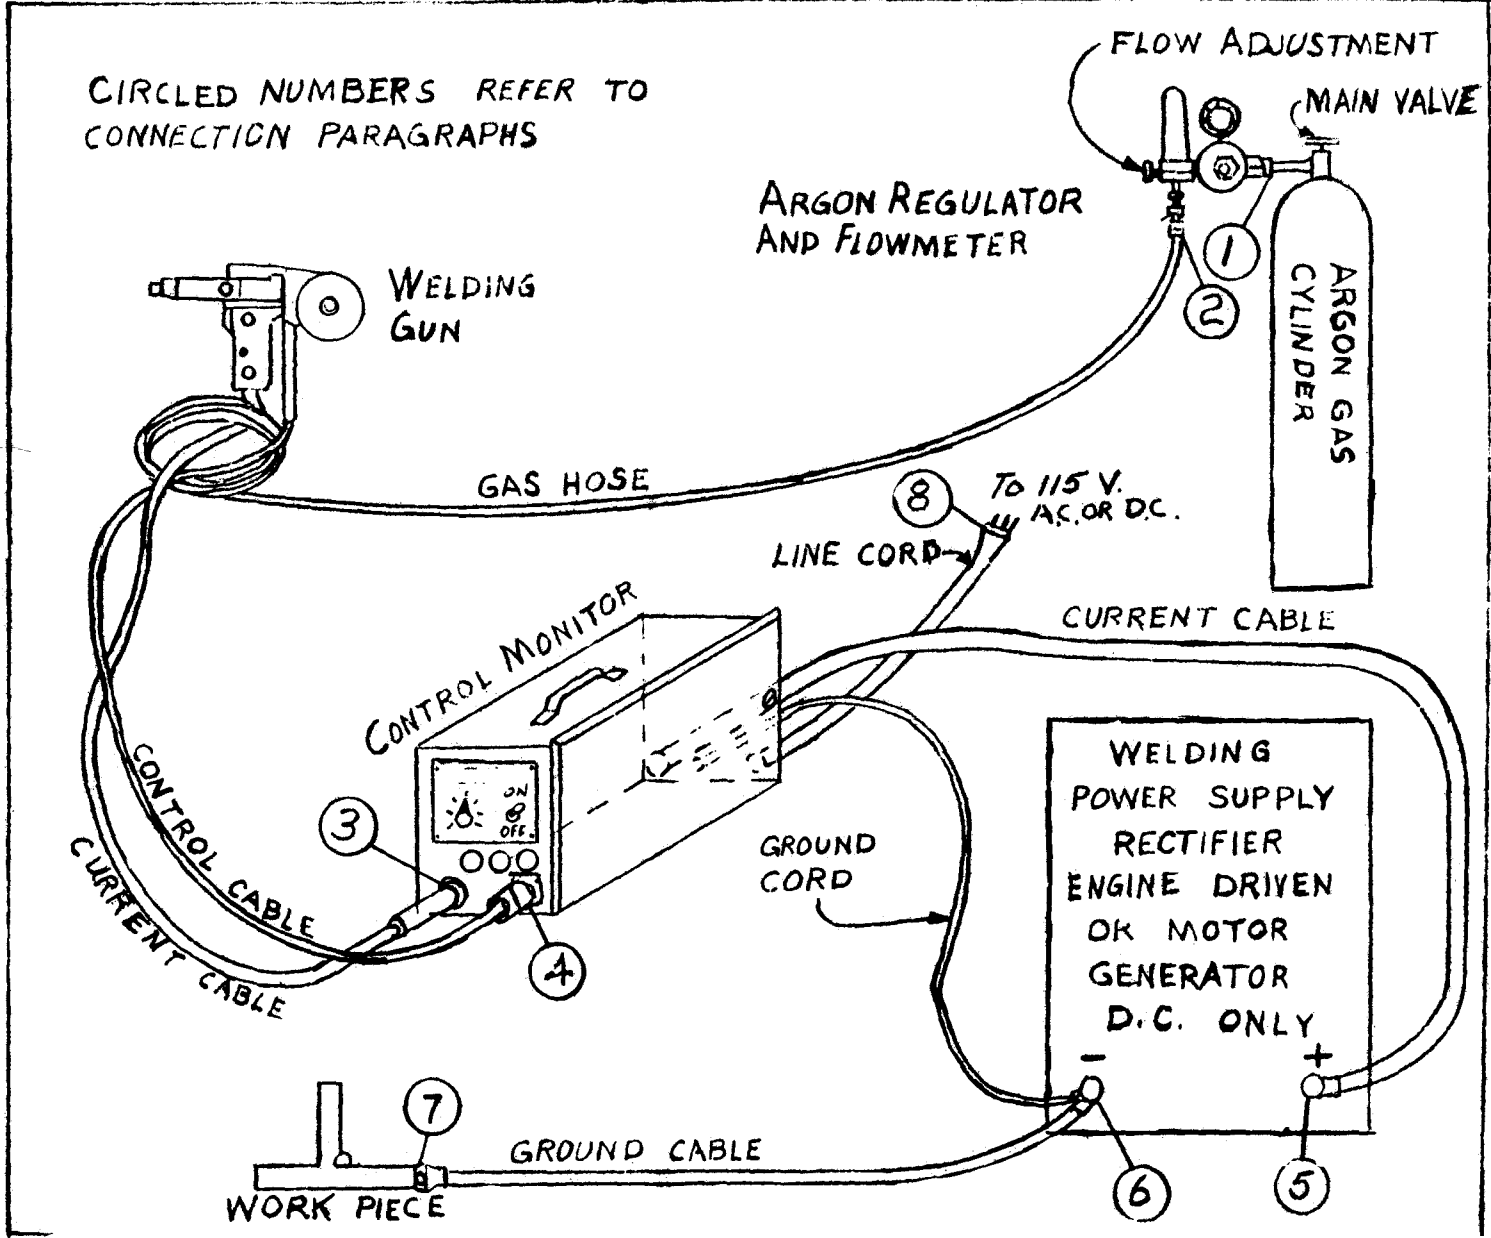 FLOW ADJUSTMENT
MAIN VALVE
CIRCLED NUMBERS REFER TO
CONNECTION PARAGRAPHS
ARGON REGULATOR
AND FLOWMETER
1
2
ARGON GAS
CYLINDER
WELDING
GUN
GAS HOSE
8
TO 115 V.
A.C. OR D.C.
LINE CORD
CURRENT CABLE
CONTROL MONITOR
ON
OFF
3
4
CONTROL CABLE
CURRENT CABLE
GROUND
CORD
WELDING
POWER SUPPLY
RECTIFIER
ENGINE DRIVEN
OR MOTOR
GENERATOR
D.C. ONLY
- +
7
GROUND CABLE
WORK PIECE
6
5